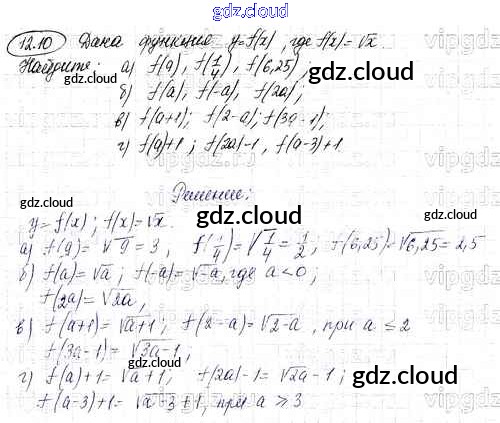 gdz.cloud
12.10 Дана функция y=f(x), где f(x)=√x.
Найдите: а) f(9), f(1/4), f(6,25);
б) f(a), f(-a), f(2a);
в) f(a+1); f(2-a); f(3a-1);
г) f(a)+1; f(2a)-1, f(a-3)+1
gdz.cloud
gdz.cloud
Решение:
gdz.cloud
y=f(x); f(x)=√x.
а) f(9)=√9=3, f(1/4)=√1/4=1/2; f(6,25)=√6,25=2,5
б) f(a)=√a; f(-a)=√-a, где a<0;
gdz.cloud
f(2a)=√2a,
в) f(a+1)=√a+1; f(2-a)=√2-a, при a≤2
f(3a-1)=√3a-1;
gdz.cloud
г) f(a)+1=√a+1; f(2a)-1=√2a-1;
gdz.cloud
f(a-3)+1=√a-3+1, при a≥3